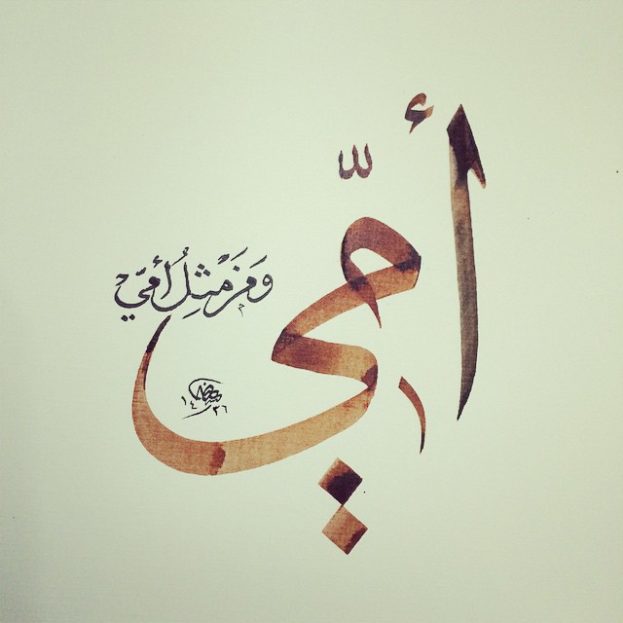 أمّي
وَمَن مثلُ أمّي
١٤٣٦